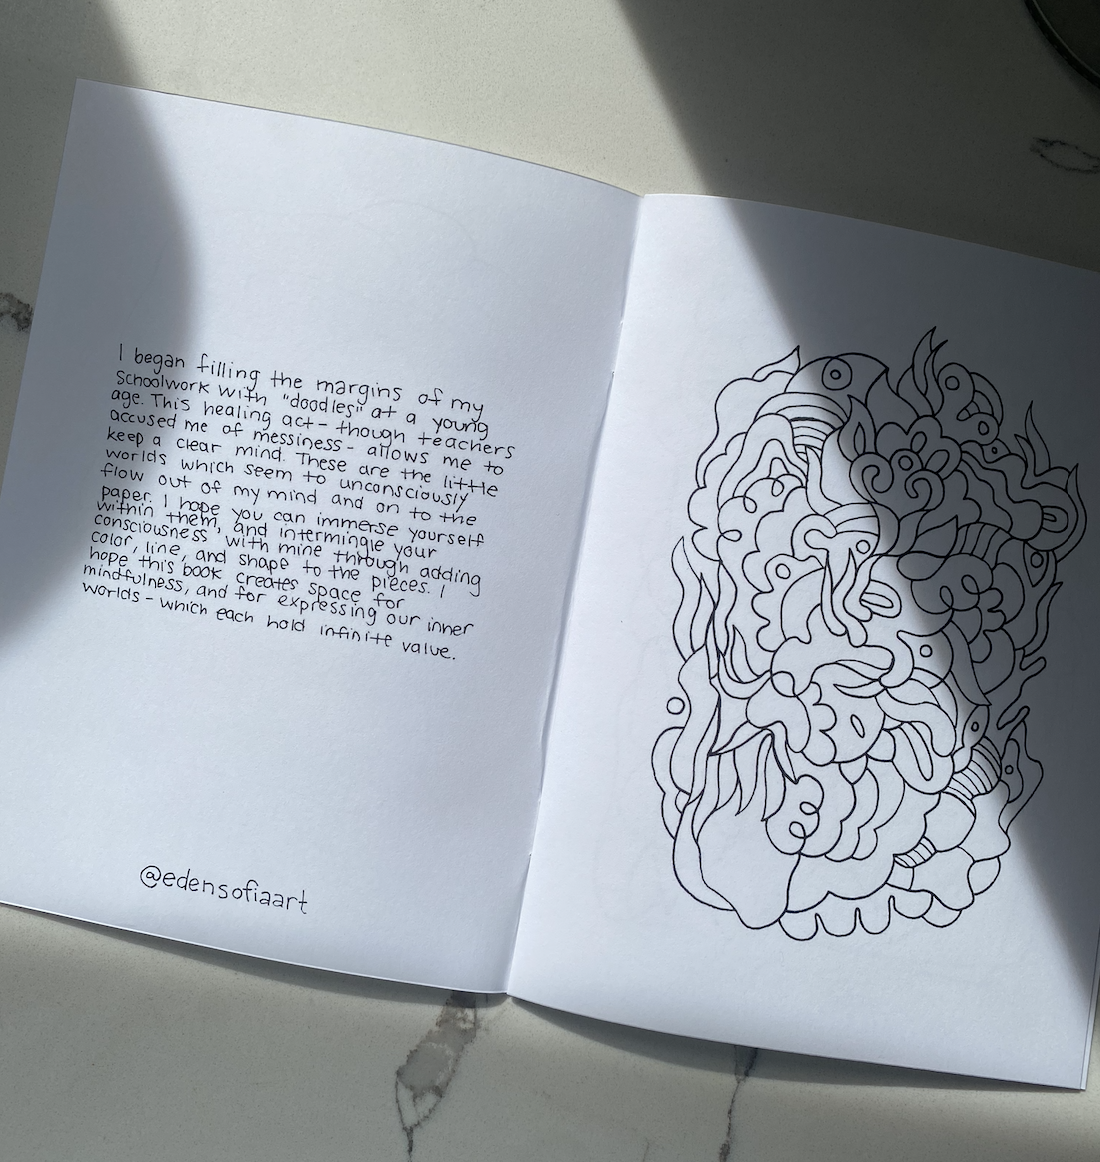 I began filling the margins of my
Schoolwork with "doodles" at a young
age. This healing act - though teachers
accused me of messiness - allows me to
keep a clear mind. These are the little
worlds which seem to unconsciously
flow out of my mind and on to the
paper. I hope you can immerse yourself
within them, and intermingle your
consciousness with mine through adding
color, line, and shape to the pieces. I
hope this book creates space for
mindfulness, and for expressing our inner
worlds - which each hold infinite value.
@edensofiaart